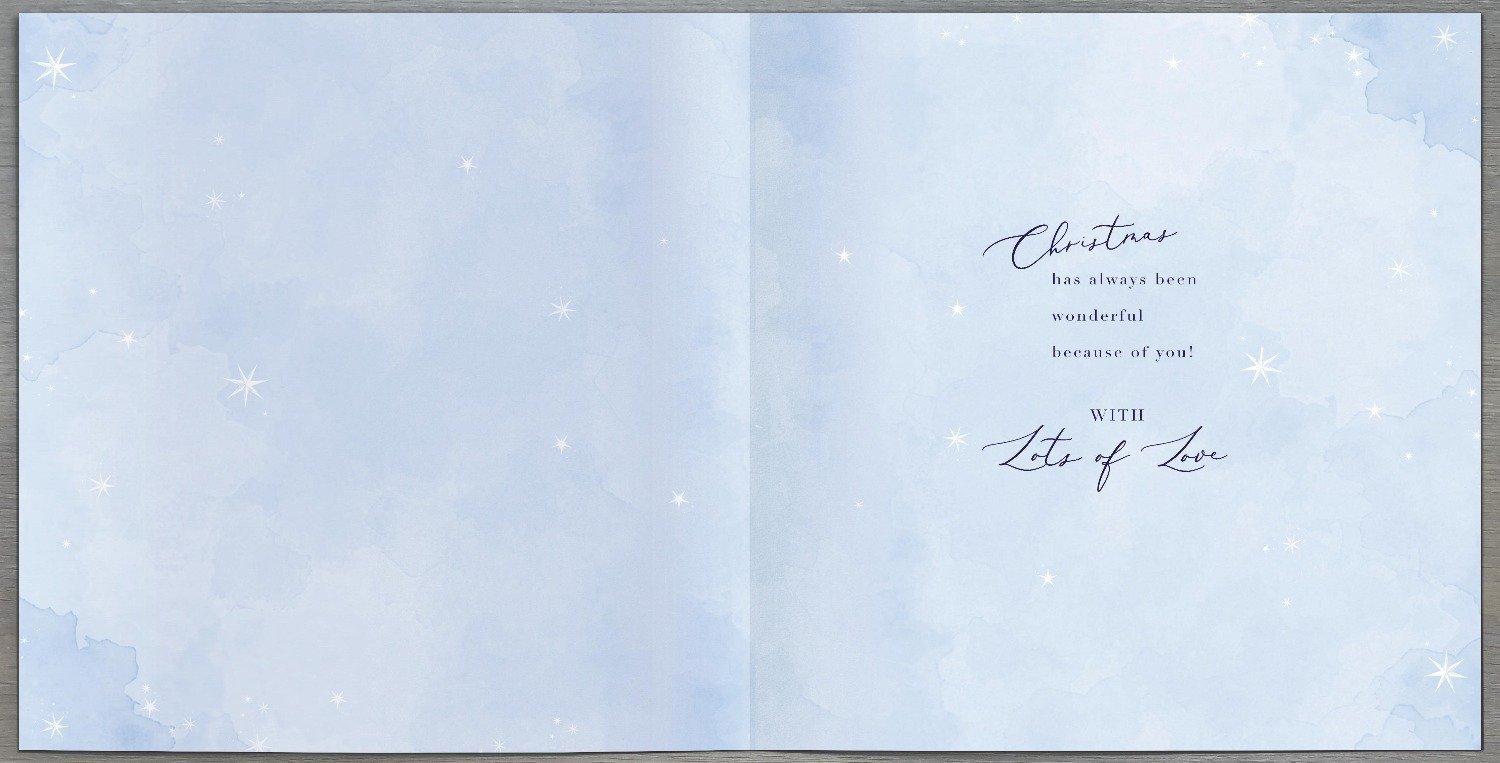 Christmas
has always been
wonderful
because of you!
WITH
Lots of Love